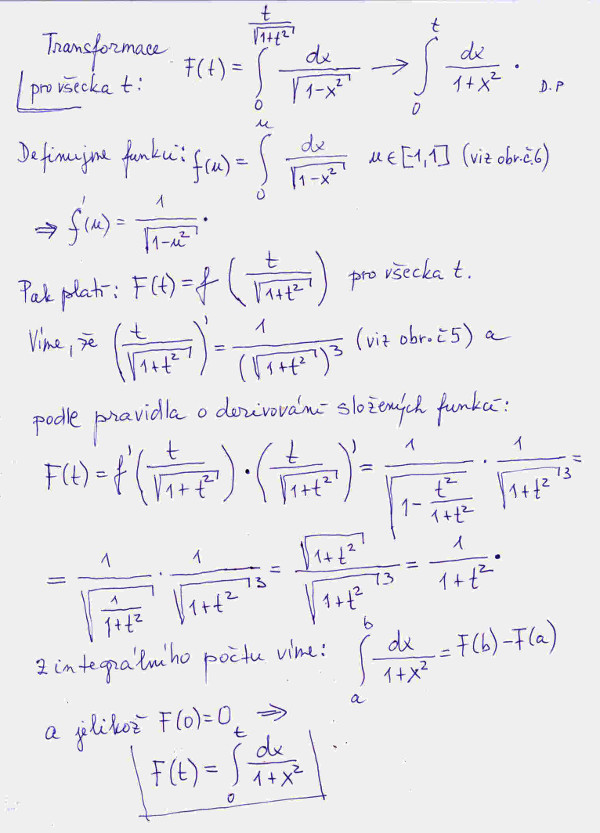 Transformace
pro všecka t: F(t) = ∫₀^{t/√(1+t²)} dx/√(1-x²) → ∫₀^t dx/(1+x²) . D.P
Definujme funkci: f(u) = ∫₀^u dx/√(1-x²) u ∈ [-1,1] (viz obr.č.6)
⇒ f'(u) = 1/√(1-u²) .
Pak platí: F(t) = f (t/√(1+t²)) pro všecka t.
Víme, že (t/√(1+t²))' = 1/(√(1+t²))³ (viz obr.č5) a
podle pravidla o derivování složených funkcí:
F(t) = f'(t/√(1+t²)) · (t/√(1+t²))' = 1/√(1 - t²/(1+t²)) · 1/√(1+t²)³ =
= 1/√(1/(1+t²)) · 1/√(1+t²)³ = √(1+t²)/√(1+t²)³ = 1/(1+t²) .
Z integrálního počtu víme: ∫ₐ^b dx/(1+x²) = F(b) - F(a)
a jelikož F(0)=0 ⇒
F(t) = ∫₀^t dx/(1+x²) ..